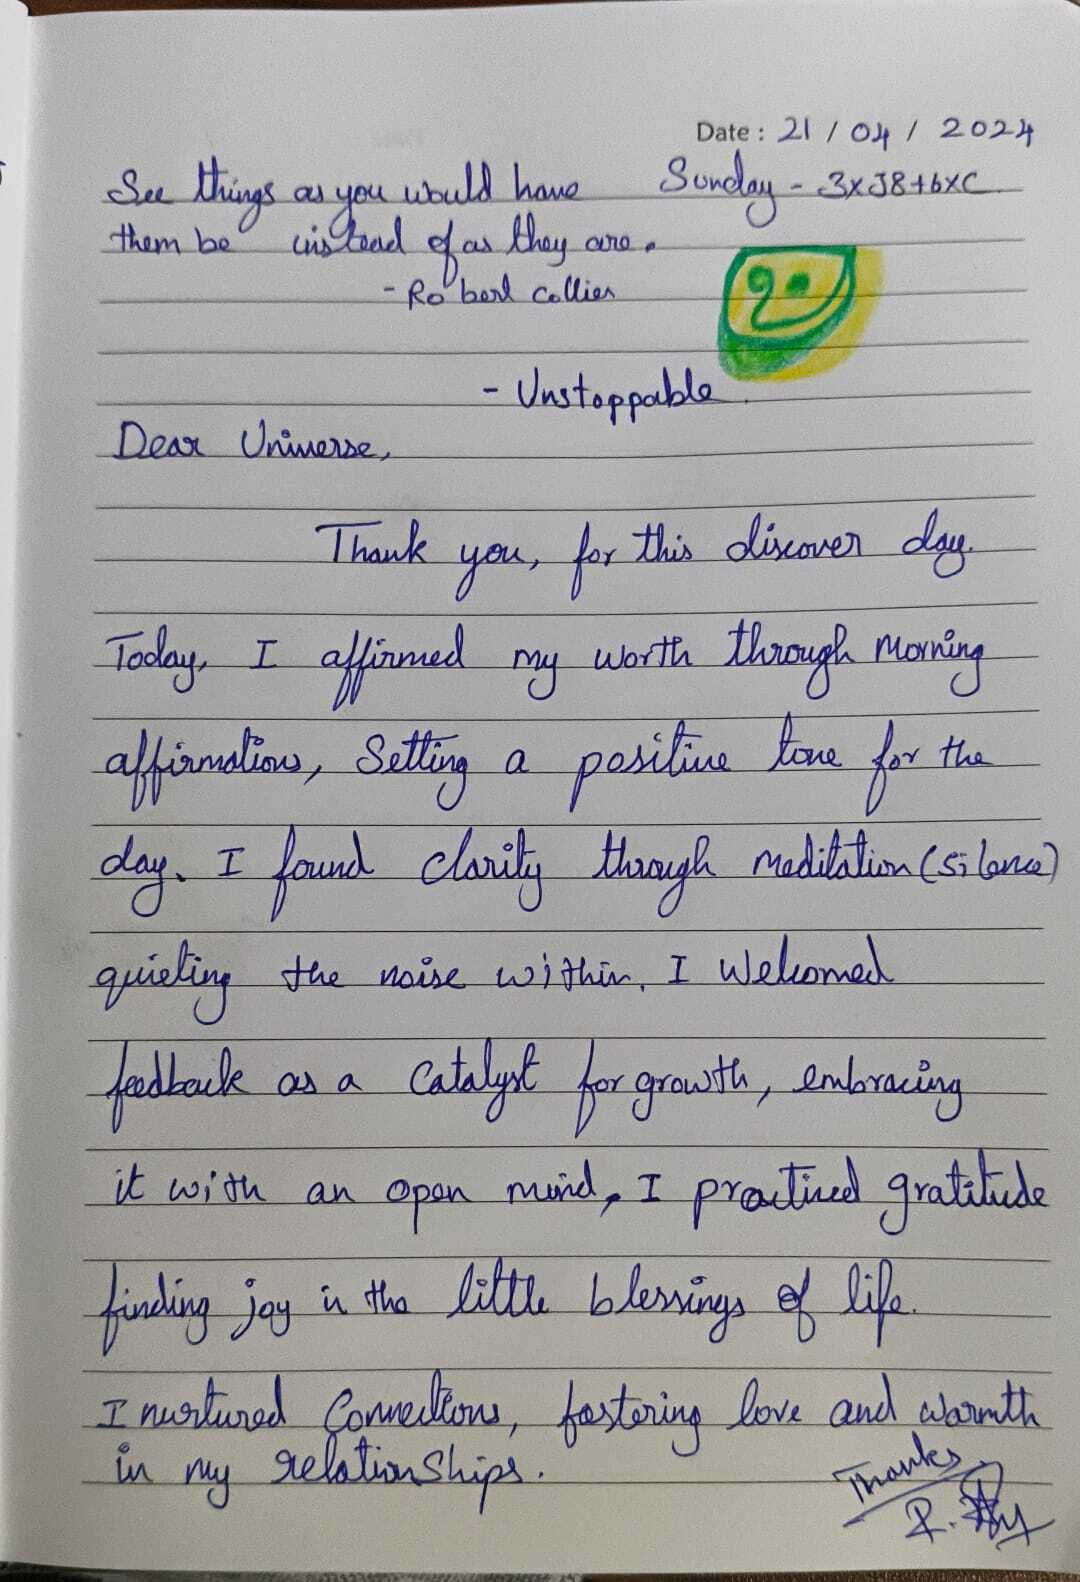 Date : 21 / 04 / 2024
See things as you would have
Sunday - 3xJ8+6xC
them be instead of as they are.
- Robert Collier
- Unstoppable
Dear Universe,
Thank you, for this discover day.
Today, I affirmed my worth through Morning
affirmations, Setting a positive tone for the
day. I found clarity through meditation (silence)
quieting the noise within. I Welcomed
feedback as a Catalyst for growth, embracing
it with an open mind, I practiced gratitude
finding joy in the little blessings of life.
I nurtured Connections, fostering love and warmth
in my relationships.
Thanks